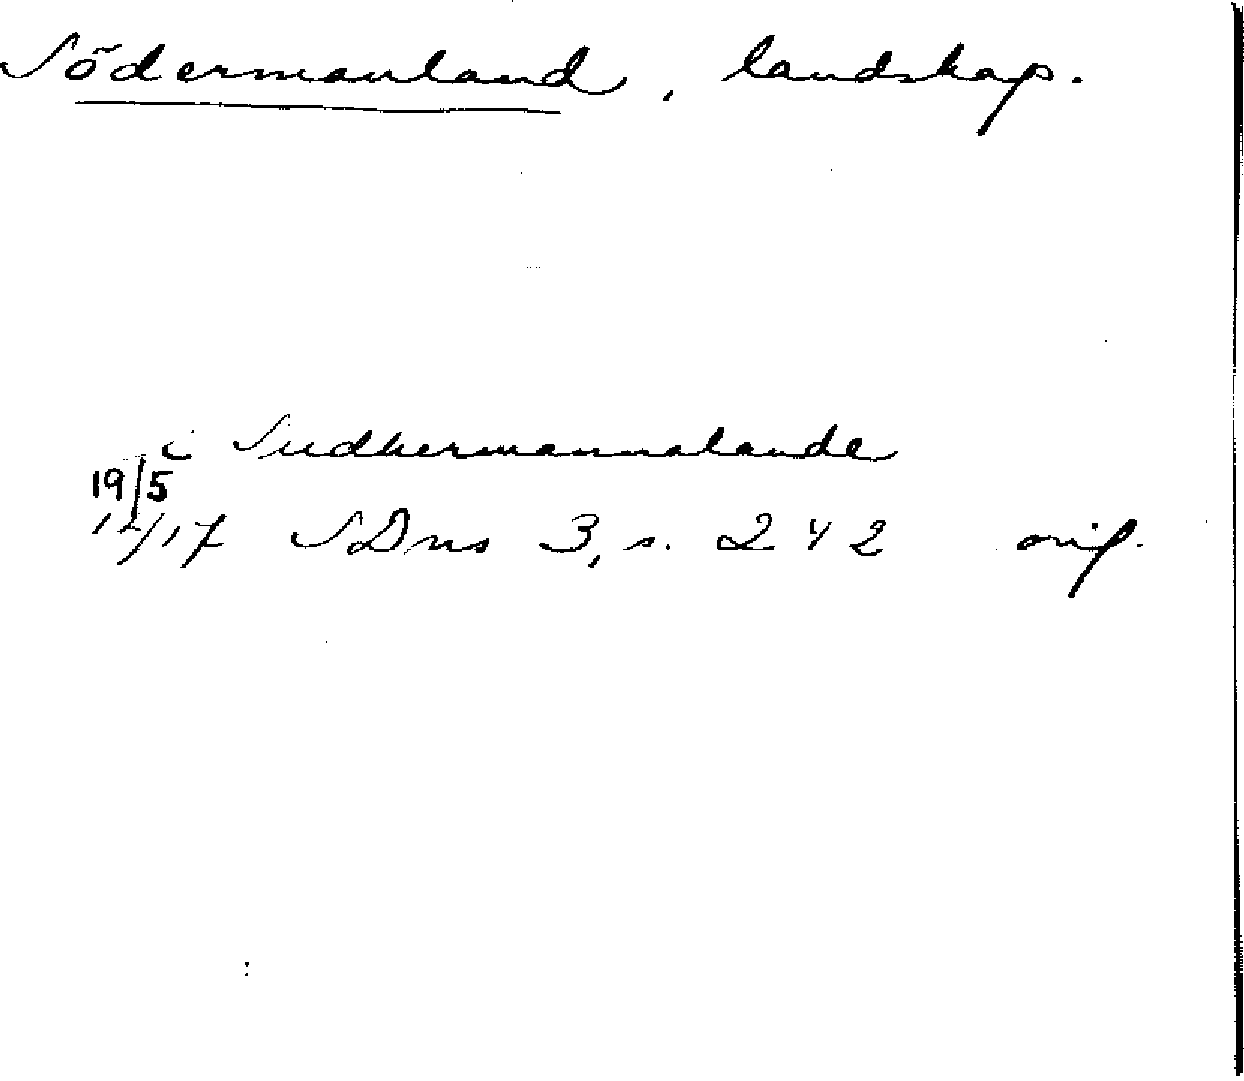 Södermanland, landskap.
i Sudhermannalande
19/5
1417 SDns 3, s. 242 orig.